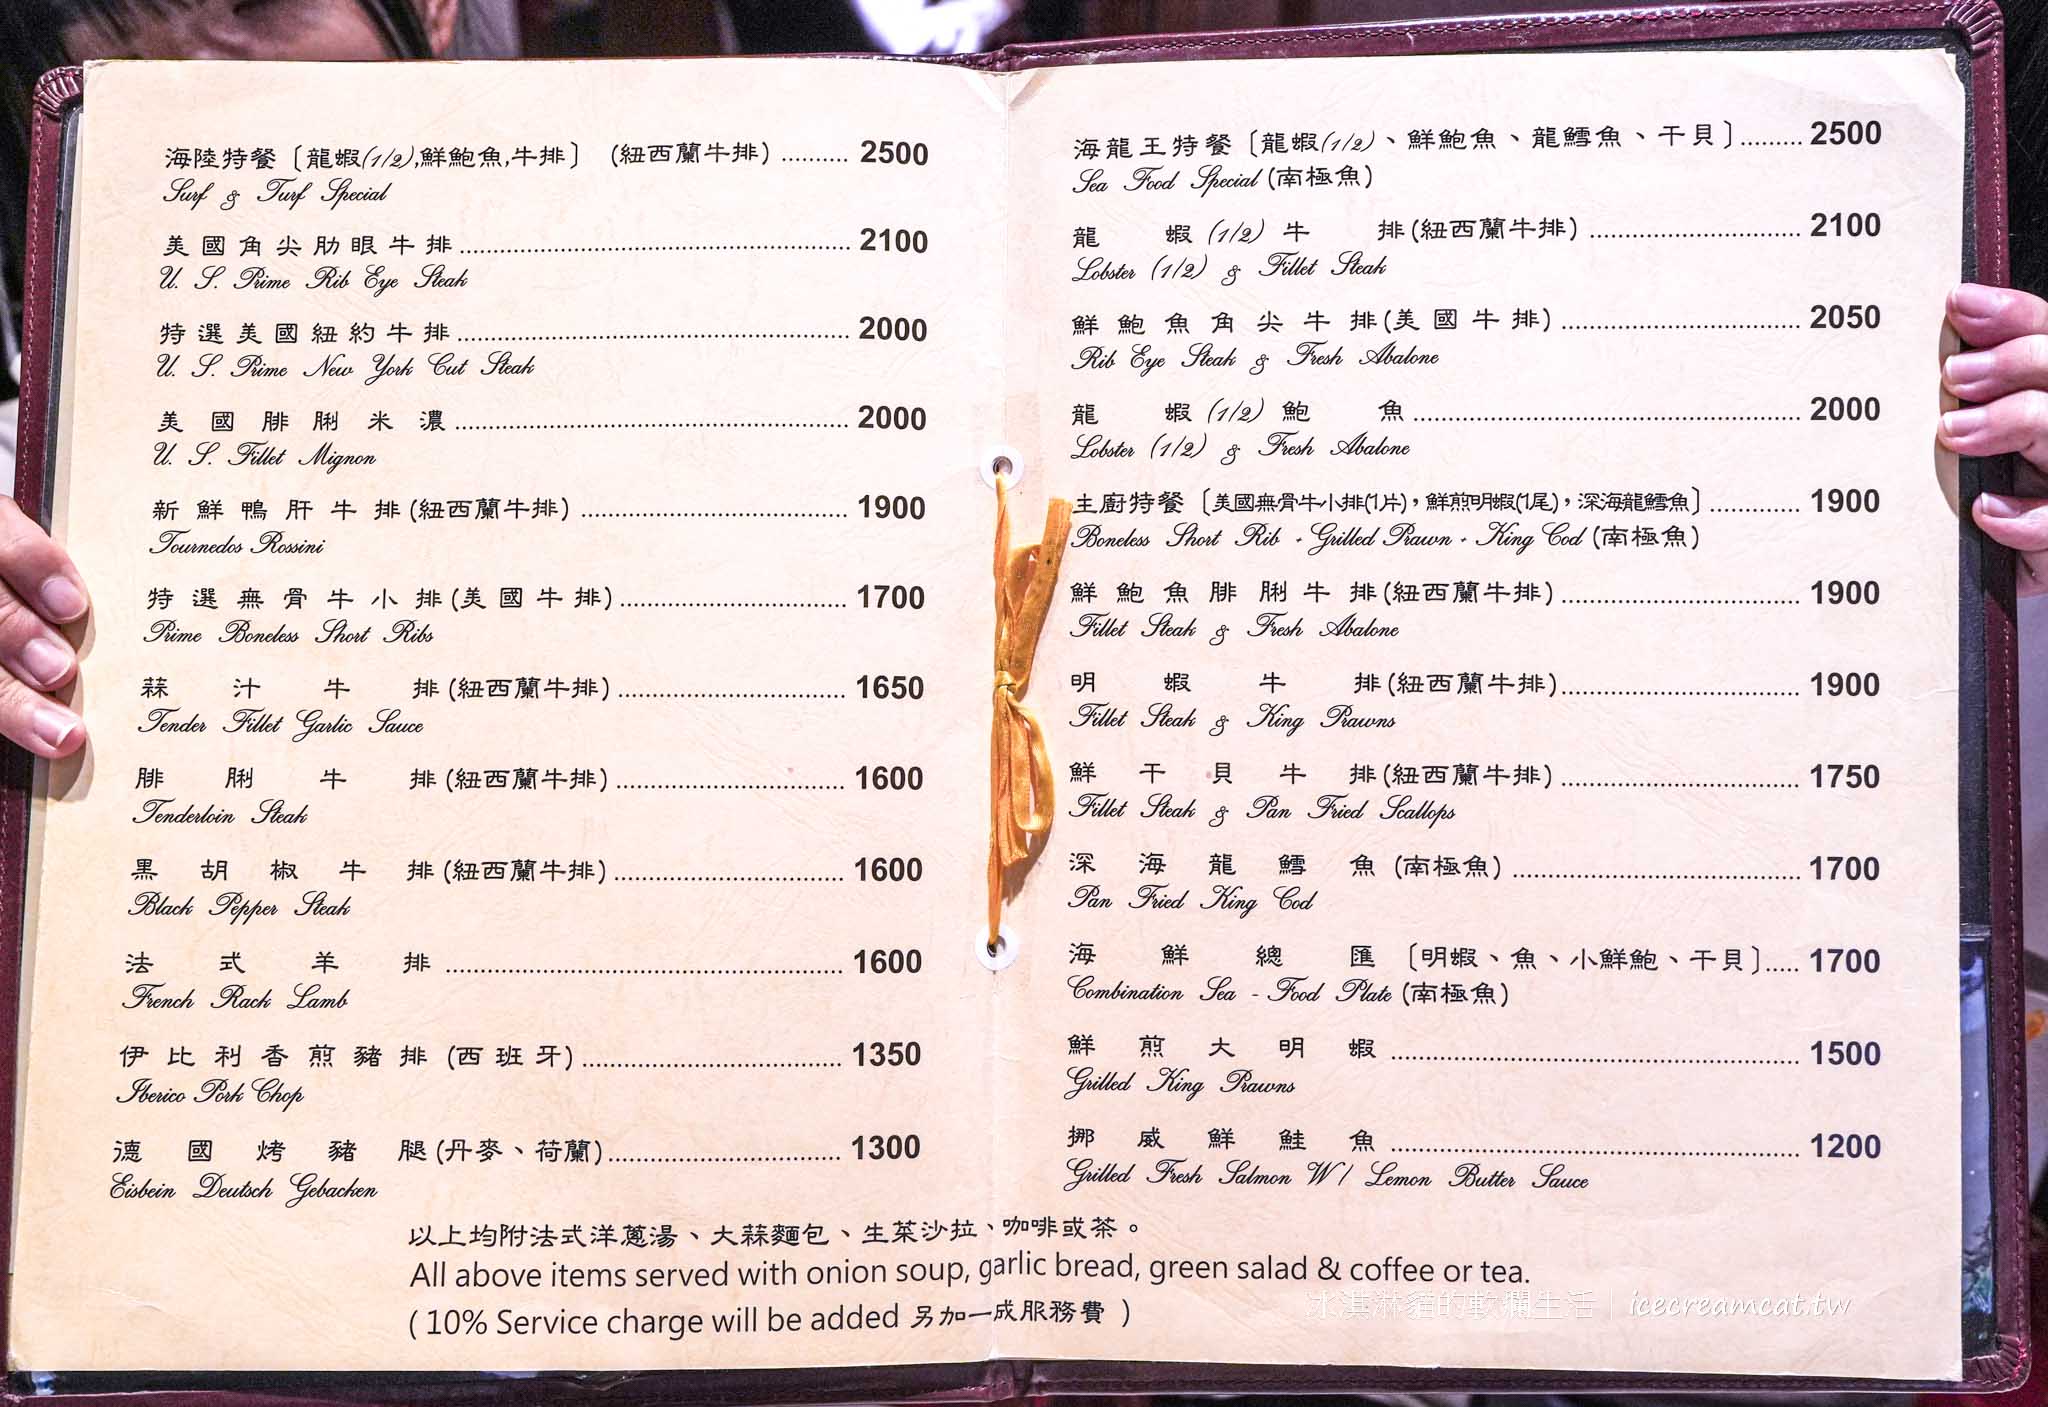 海陸特餐〔龍蝦(1/2),鮮鮑魚,牛排〕 (紐西蘭牛排) .......... 2500
Surf & Turf Special
美國角尖肋眼牛排 .......... 2100
U. S. Prime Rib Eye Steak
特選美國紐約牛排 .......... 2000
U. S. Prime New York Cut Steak
美國腓脷米濃 .......... 2000
U. S. Fillet Mignon
新鮮鴨肝牛排(紐西蘭牛排) .......... 1900
Tournedos Rossini
特選無骨牛小排(美國牛排) .......... 1700
Prime Boneless Short Ribs
蒜汁牛排(紐西蘭牛排) .......... 1650
Tender Fillet Garlic Sauce
腓脷牛排(紐西蘭牛排) .......... 1600
Tenderloin Steak
黑胡椒牛排(紐西蘭牛排) .......... 1600
Black Pepper Steak
法式羊排 .......... 1600
French Rack Lamb
伊比利香煎豬排 (西班牙) .......... 1350
Iberico Pork Chop
德國烤豬腿(丹麥、荷蘭) .......... 1300
Eisbein Deutsch Gebacken
海龍王特餐〔龍蝦(1/2)、鮮鮑魚、龍鱈魚、干貝〕......... 2500
Sea Food Special (南極魚)
龍蝦(1/2)牛排(紐西蘭牛排) .......... 2100
Lobster (1/2) & Fillet Steak
鮮鮑魚角尖牛排(美國牛排) .......... 2050
Rib Eye Steak & Fresh Abalone
龍蝦(1/2)鮑魚 .......... 2000
Lobster (1/2) & Fresh Abalone
主廚特餐〔美國無骨牛小排(1片),鮮煎明蝦(1尾),深海龍鱈魚〕.......... 1900
Boneless Short Rib • Grilled Prawn • King Cod (南極魚)
鮮鮑魚腓脷牛排(紐西蘭牛排) .......... 1900
Fillet Steak & Fresh Abalone
明蝦牛排(紐西蘭牛排) .......... 1900
Fillet Steak & King Prawns
鮮干貝牛排(紐西蘭牛排) .......... 1750
Fillet Steak & Pan Fried Scallops
深海龍鱈魚 (南極魚) .......... 1700
Pan Fried King Cod
海鮮總匯〔明蝦、魚、小鮮鮑、干貝〕..... 1700
Combination Sea - Food Plate (南極魚)
鮮煎大明蝦 .......... 1500
Grilled King Prawns
挪威鮮鮭魚 .......... 1200
Grilled Fresh Salmon W / Lemon Butter Sauce
以上均附法式洋蔥湯、大蒜麵包、生菜沙拉、咖啡或茶。
All above items served with onion soup, garlic bread, green salad & coffee or tea.
( 10% Service charge will be added 另加一成服務費 )
冰淇淋貓的軟糧生活 | icecreamcat.tw